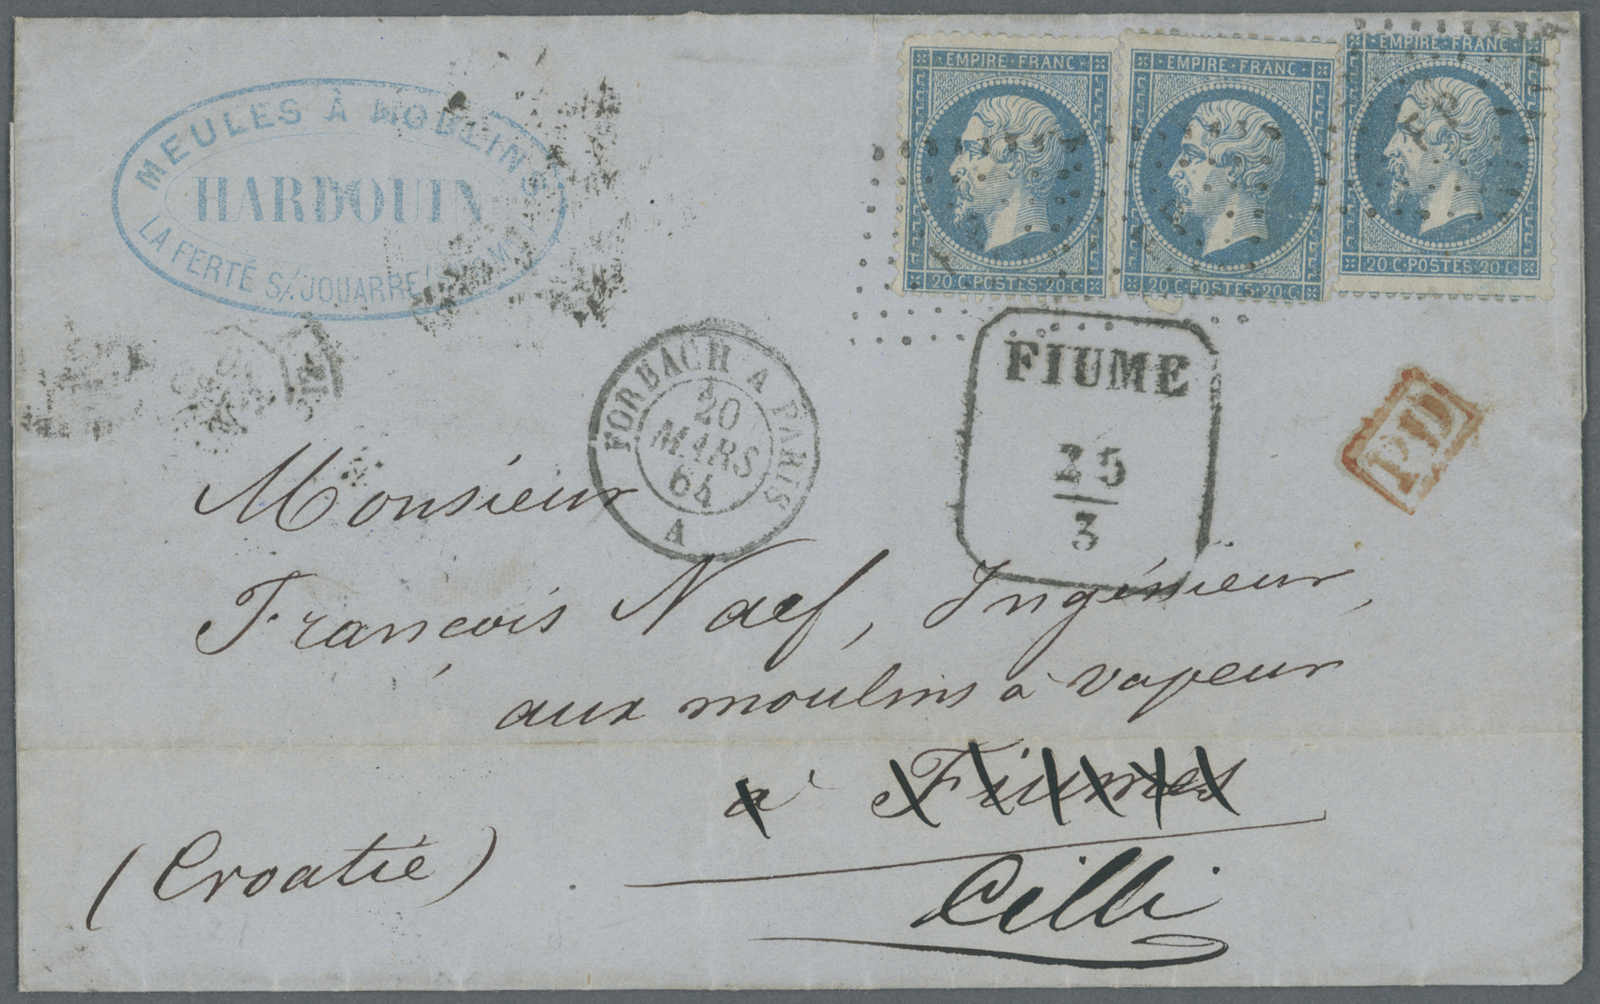 MEULES À MOULINS
HARDOUIN
LA FERTÉ S/. JOUARRE
EMPIRE · FRANC
20 C · POSTES · 20 C
EMPIRE · FRANC
20 C · POSTES · 20 C
EMPIRE · FRANC
20 C · POSTES · 20 C
FORBACH A PARIS
20
MARS
64
A
FIUME
25
3
PD
Monsieur
François Naef, Ingénieur,
aux moulins à vapeur
à Fiumes
(Croatie)
Cilli